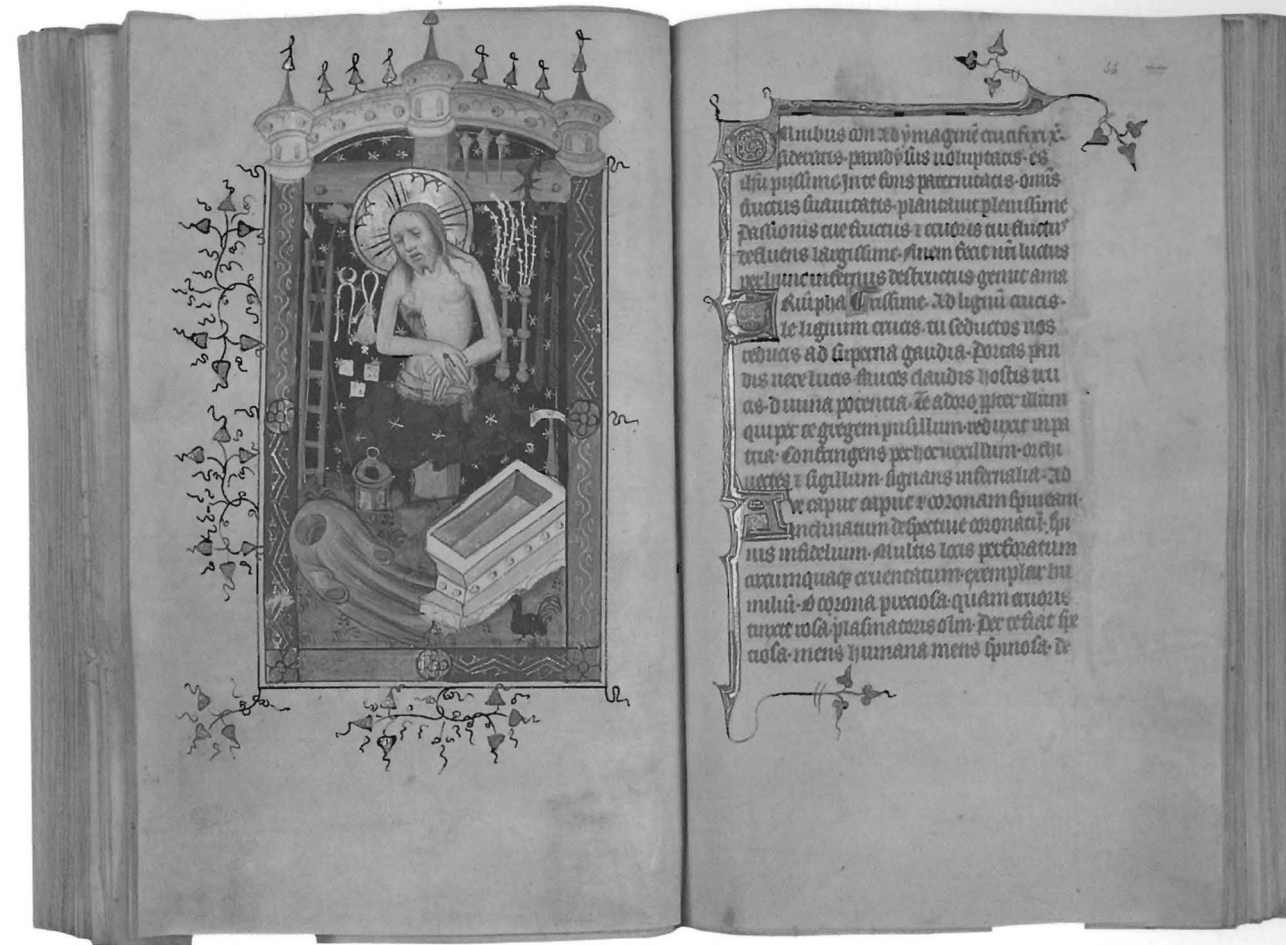 Omnibus con Ad ymaginē crucifixi xp̄.
sideratis. paradysus uoluptatis. es
ihū pijssime. In te fons paternitatis. omīs
fructus suauitatis. plantauit plenissime
Passionis tue fructus ⁊ cruoris tui fluctus
defluens largissime. Auem fecit
per hunc infernus destructus genuit ama
Triūpha tissime. Ad lignū crucis.
le lignum crucis. tu seductos nos
reducis ad superna gaudia. Portas pan
dis uere lucis. fauces claudis hostis tru
cis. diuina potencia. Te adoro ꝑiter illum
qui per te gregem pusillum. reduxit in pa
tria. Confringens per hoc uexillum. orchi
⁊ sigillum. signans infernalia. Ad
ve caput caput ⁊ coronam spineam.
inclinatum despectiue coronatū. spi
nis infidelium. Multis locis perforatum
circumquaqꝫ cruentatum. exemplar hu
miliū. O corona preciosa. quam cruoris
tinxit rosa. plasmatoris olim. Per te fiat spe
ciosa. mens humana mens spinosa. de